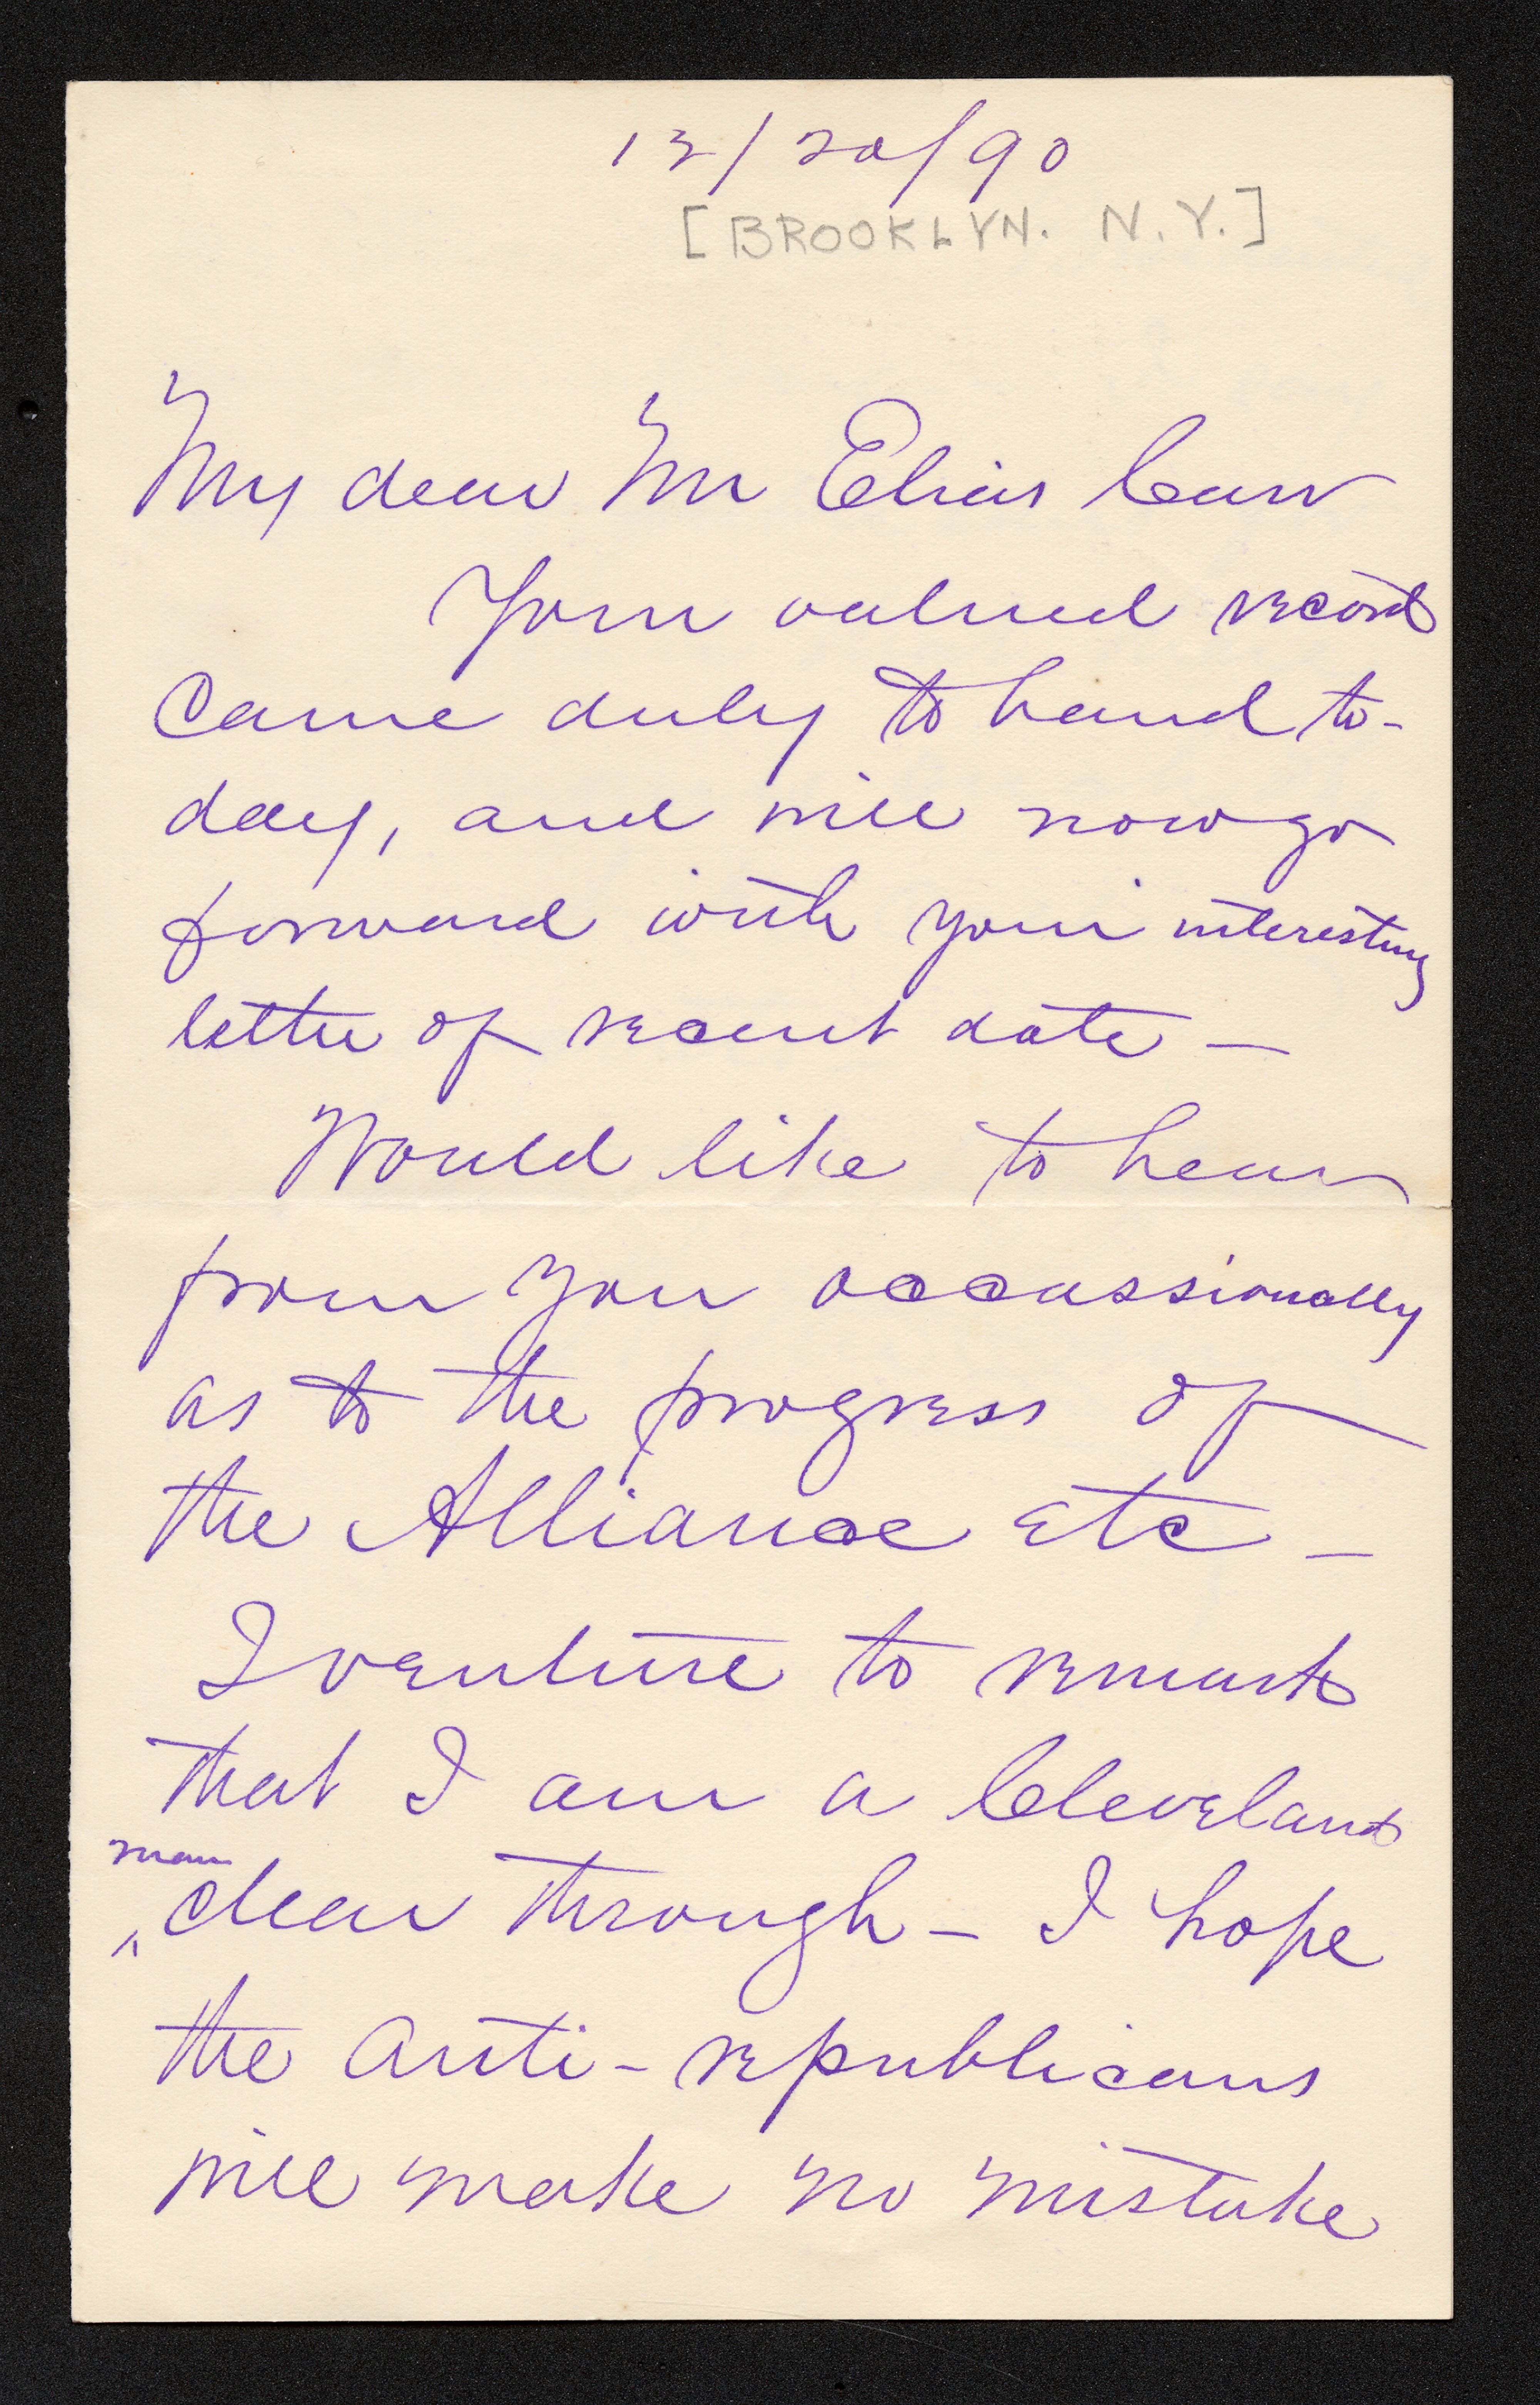 12/20/90
[BROOKLYN. N.Y.]
My dear Mr Elias Carr
Your valued record
came duly to hand to-
day, and will now go
forward with your interesting
letter of recent date —
Would like to hear
from you occassionally
as to the progress of
the Alliance etc —
I venture to remark
that I am a Cleveland
man
clear through — I hope
the anti-republicans
will make no mistake